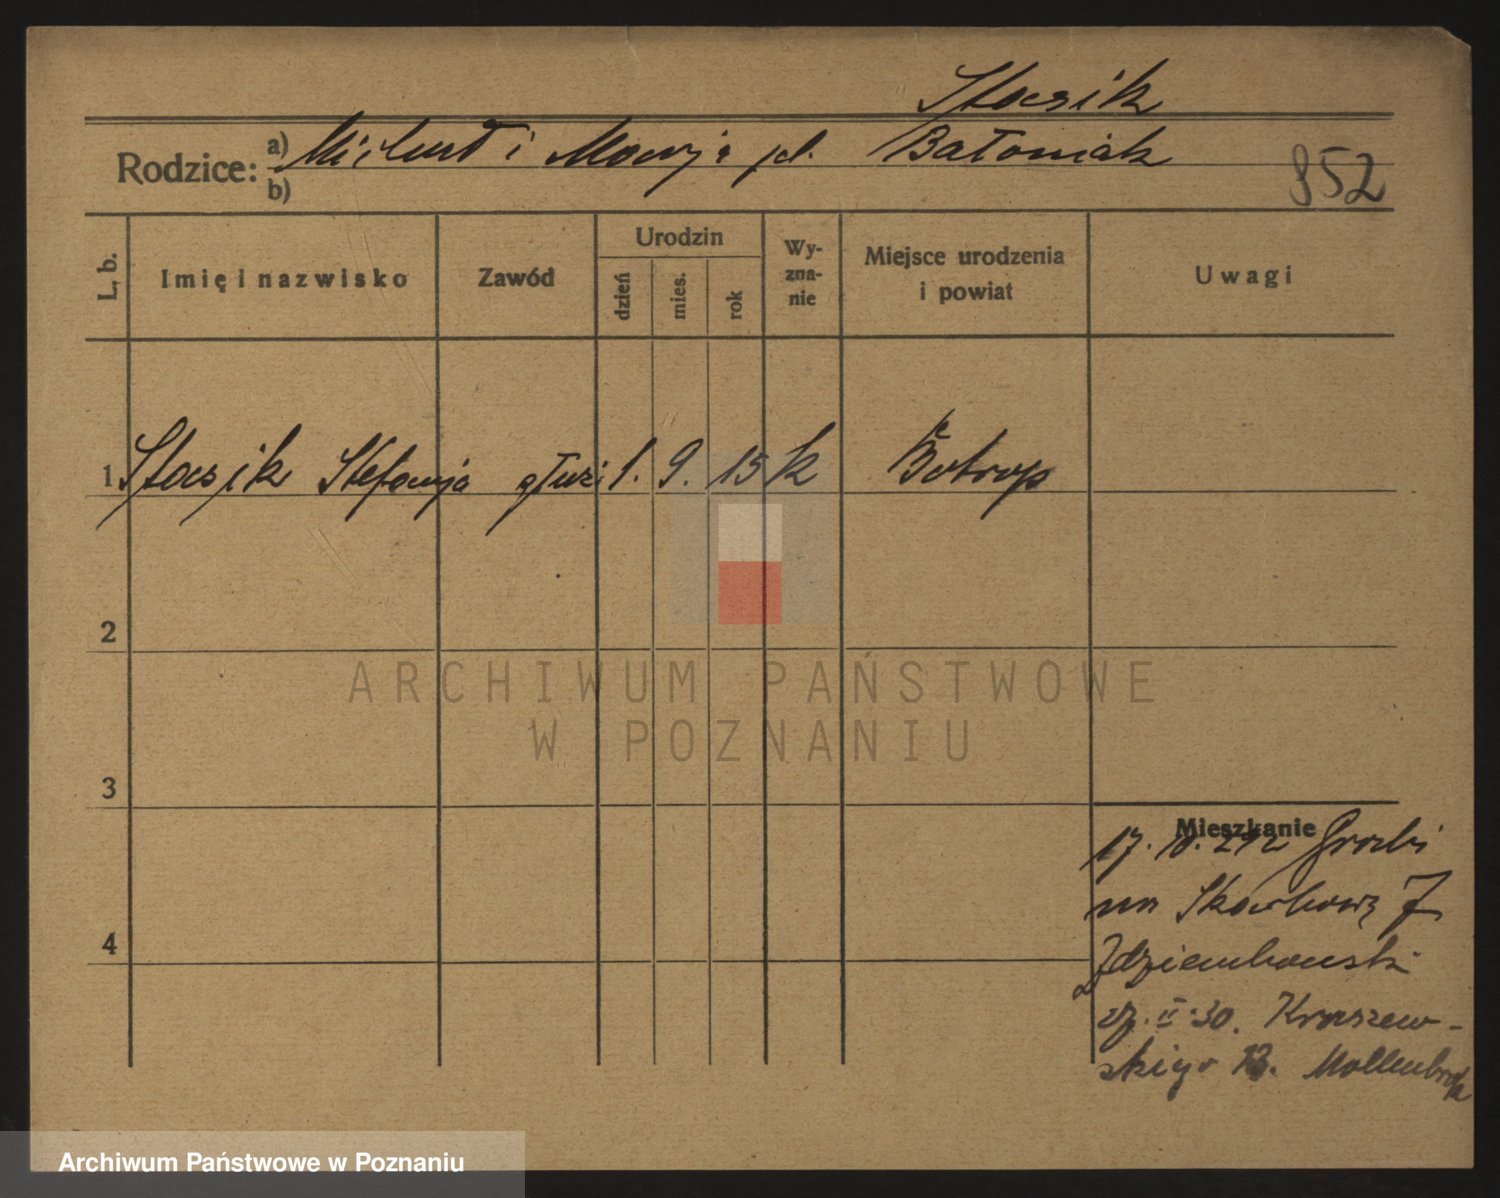 Stasik
Rodzice: a) Michał i Marja zd. Batoniak
b)
852
L. b.
Imię i nazwisko
Zawód
Urodzin
dzień
mies.
rok
Wy-
zna-
nie
Miejsce urodzenia
i powiat
Uwagi
1 Stasik Stefanja służ. 1. 9. 15 k Botrop
2
3
4
Mieszkanie
17. 10. 29
7
27. II. 30. Kraszew-
skiego 13.
ARCHIWUM PAŃSTWOWE
W POZNANIU
Archiwum Państwowe w Poznaniu